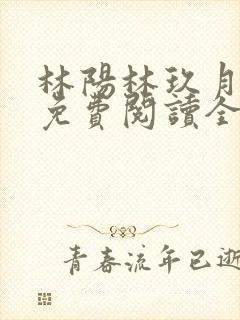 林陽林玖月
免費閱讀全
青春流年已逝